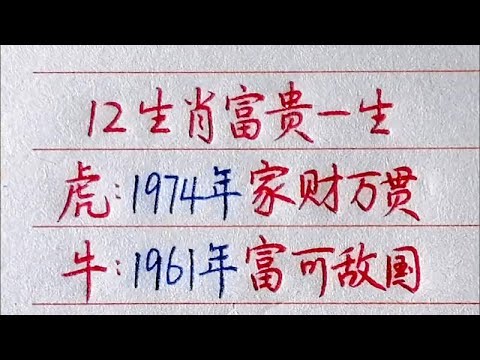 12生肖富贵一生
虎:1974年家财万贯
牛:1961年富可敌国